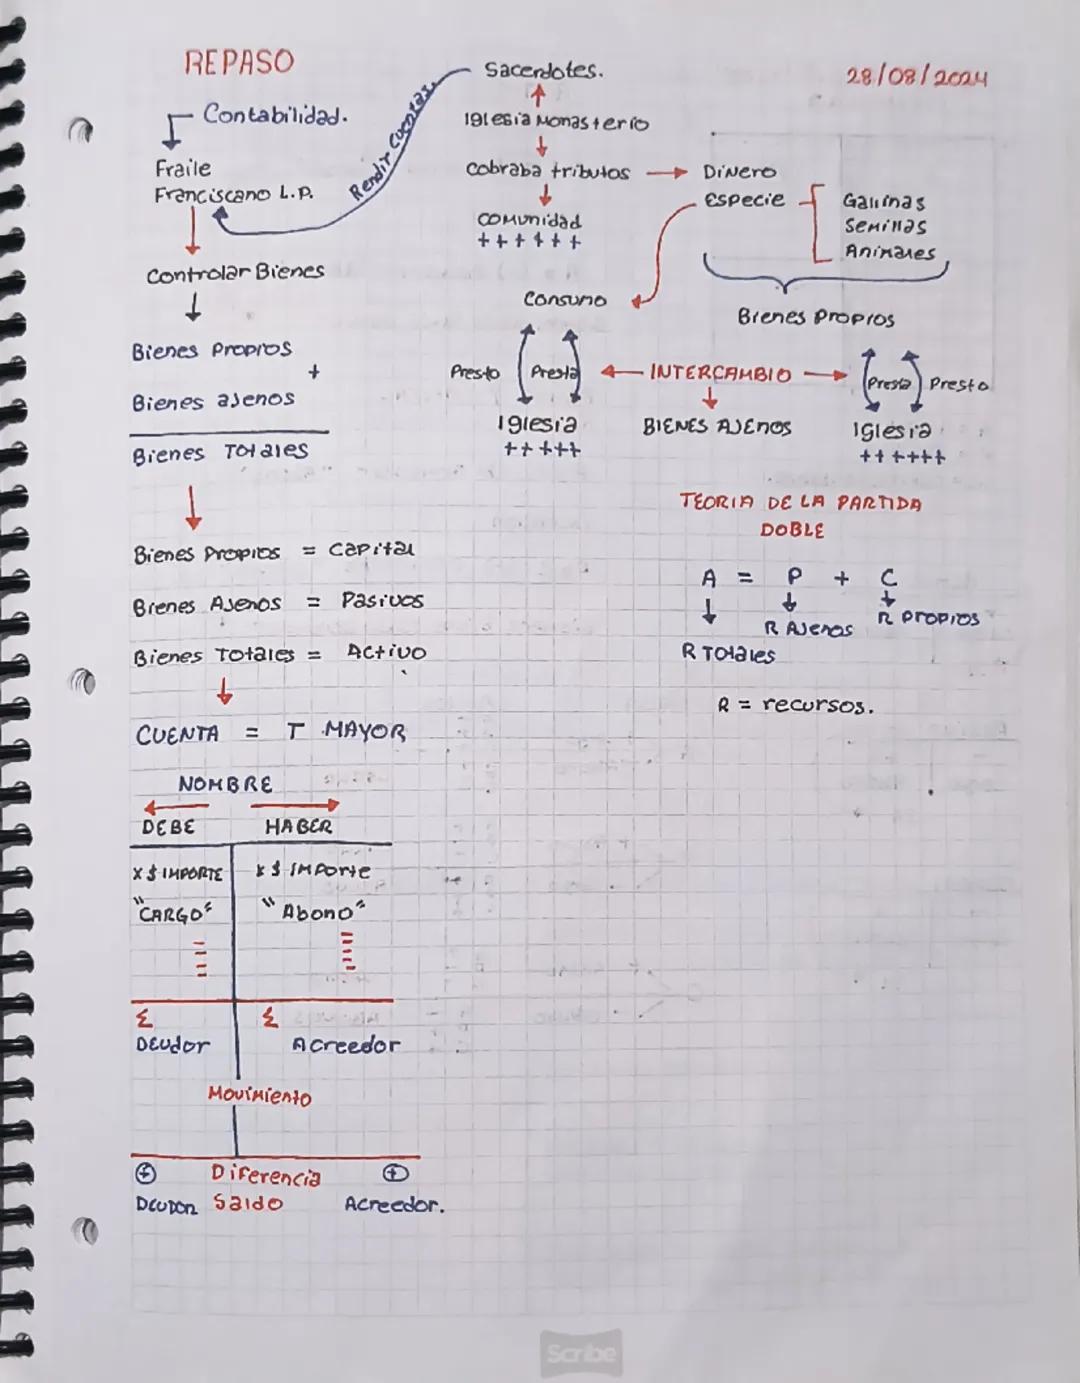 REPASO
28/08/2024
Contabilidad.
Fraile
Franciscano L.P.
Rendir Cuentas.
Controlar Bienes
Bienes Propios
+
Bienes ajenos
Bienes Totales
Bienes Propios = Capital
Bienes Ajenos = Pasivos
Bienes Totales = Activo
CUENTA = T MAYOR
NOMBRE
DEBE HABER
X $ IMPORTE x $ Importe
"CARGO" "Abono"
Σ Σ
Deudor Acreedor
Movimiento
+ Diferencia +
Deudor Saldo Acreedor.
Sacerdotes.
Iglesia Monasterio
Cobraba tributos
Comunidad
++++++
Dinero
Especie
Gallinas
Semillas
Animales
Consumo
Bienes Propios
Presto Presta INTERCAMBIO Presta Presto
Iglesia BIENES AJENOS Iglesia
+++++ ++++++
TEORIA DE LA PARTIDA
DOBLE
A = P + C
R Ajenos R Propios
R Totales
R = recursos.
Scribe